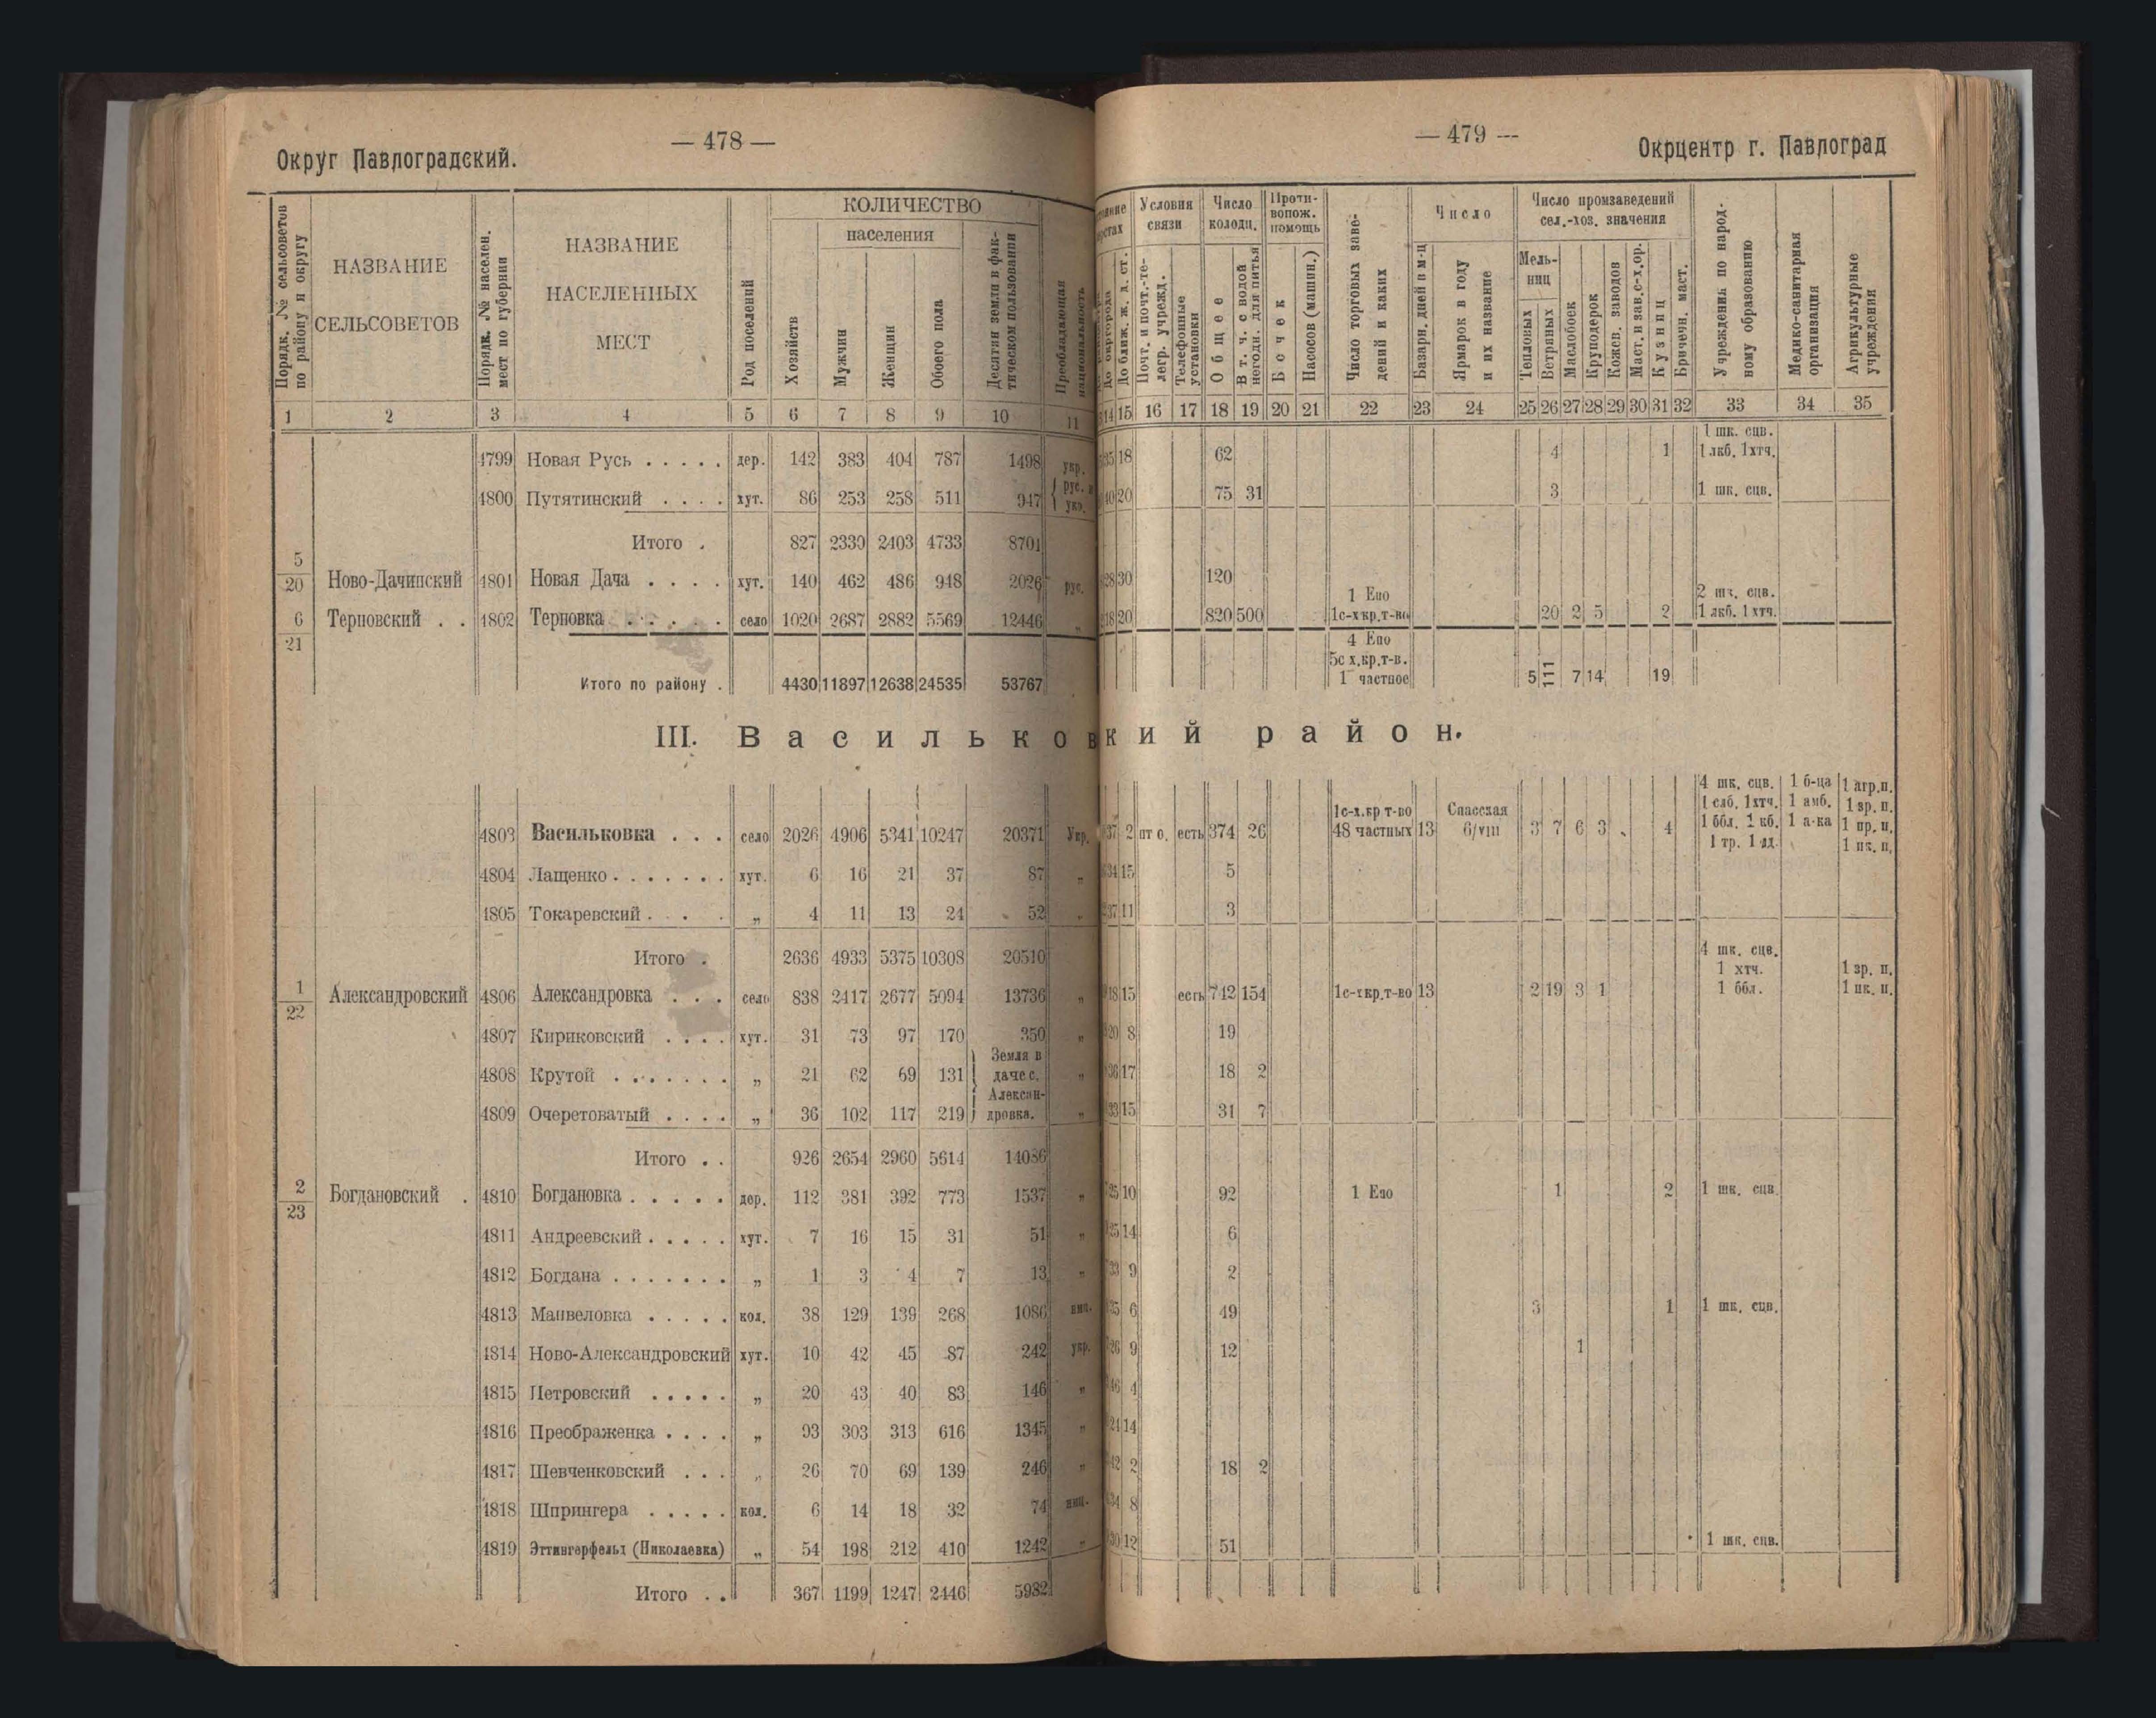 — 478 —
Округ Павлоградский.
Порядк. № сельсоветов по району и округу
НАЗВАНИЕ СЕЛЬСОВЕТОВ
Порядк. № населен. мест по губернии
НАЗВАНИЕ НАСЕЛЕННЫХ МЕСТ
Род поселений
КОЛИЧЕСТВО
населения
Хозяйств
Мужчин
Женщин
Обоего пола
Десятин земли в фактическом пользовании
Преобладающая национальность
1 2 3 4 5 6 7 8 9 10 11
4799 Новая Русь . . . . . дер. 142 383 404 787 1498 укр.
4800 Путятинский . . . . хут. 86 253 258 511 947 { рус. и укр.
Итого . 827 2330 2403 4733 8701
5/20 Ново-Дачинский 4801 Новая Дача . . . . хут. 140 462 486 948 2026 рус.
6/21 Терновский . . 4802 Терновка . . . . . село 1020 2687 2882 5569 12446 „
Итого по району . 4430 11897 12638 24535 53767
III. Васильковский район.
4803 Васильковка . . . село 2026 4906 5341 10247 20371 Укр.
4804 Лащенко . . . . . . . хут. 6 16 21 37 87 „
4805 Токаревский . . . „ 4 11 13 24 52 „
Итого . 2636 4933 5375 10308 20510
1/22 Александровский 4806 Александровка . . . село 838 2417 2677 5094 13736 „
4807 Кириковский . . . . хут. 31 73 97 170 350 „
4808 Крутой . . . . . . . „ 21 62 69 131 } Земля в даче с. „
4809 Очеретоватый . . . . „ 36 102 117 219 } Александровка. „
Итого . . 926 2654 2960 5614 14086
2/23 Богдановский . 4810 Богдановка . . . . . дер. 112 381 392 773 1537 „
4811 Андреевский . . . . . хут. 7 16 15 31 51 „
4812 Богдана . . . . . . . „ 1 3 4 7 13 „
4813 Манвеловка . . . . . кол. 38 129 139 268 1086 нмц.
4814 Ново-Александровский хут. 10 42 45 87 242 укр.
4815 Петровский . . . . . „ 20 43 40 83 146 „
4816 Преображенка . . . . „ 93 303 313 616 1345 „
4817 Шевченковский . . . „ 26 70 69 139 246 „
4818 Шпрингера . . . . . кол. 6 14 18 32 74 нмц.
4819 Эттингерфельд (Николаевка) „ 54 198 212 410 1242 „
Итого . . 367 1199 1247 2446 5982
— 479 —
Окрцентр г. Павлоград
До окргорода
До ближ. ж. д. ст.
Условия связи
Почт. и почт.-телегр. учрежд.
Телефонные установки
Число колодц.
Общее
В т. ч. с водой негодн. для питья
Противопож. помощь
Бочек
Насосов (машин.)
Число торговых заведений и каких
Число
Базарн. дней в м-ц
Ярмарок в году и их название
Число промзаведений сел.-хоз. значения
Мельниц
Тепловых
Ветряных
Маслобоек
Круподерок
Кожев. заводов
Маст. и зав. с-х. ор.
Кузниц
Бричечн. маст.
Учреждения по народному образованию
Медико-санитарная организация
Агрикультурные учреждения
14 15 16 17 18 19 20 21 22 23 24 25 26 27 28 29 30 31 32 33 34 35
35 18 62 4 1 1 шк. сцв. 1 лкб. 1хтч.
40 20 75 31 3 1 шк. сцв.
28 30 120
18 20 820 500 1 Епо 1с-хкр.т-во 20 2 5 2 2 шк. сцв. 1 лкб. 1 хтч.
4 Епо 5с х.кр.т-в. 1 частное 5 111 7 14 19
37 2 пт о. есть 374 26 1с-х.кр т-во 48 частных 13 Спасская 6/VIII 3 7 6 3 4 4 шк. сцв. 1 слб. 1хтч. 1 ббл. 1 кб. 1 тр. 1 дд. 1 б-ца 1 амб. 1 а-ка 1 агр.п. 1 зр. п. 1 пр. п. 1 пк. п.
34 15 5
37 11 3
18 15 есть 742 154 1с-хкр.т-во 13 2 19 3 1 4 шк. сцв. 1 хтч. 1 ббл. 1 зр. п. 1 пк. п.
20 8 19
36 17 18 2
33 15 31 7
25 10 92 1 Епо 1 2 1 шк. сцв
25 14 6
33 9 2
25 6 49 3 1 1 шк. сцв.
26 9 12 1
46 4
24 14
42 2 18 2
34 8
30 12 51 1 шк. сцв.